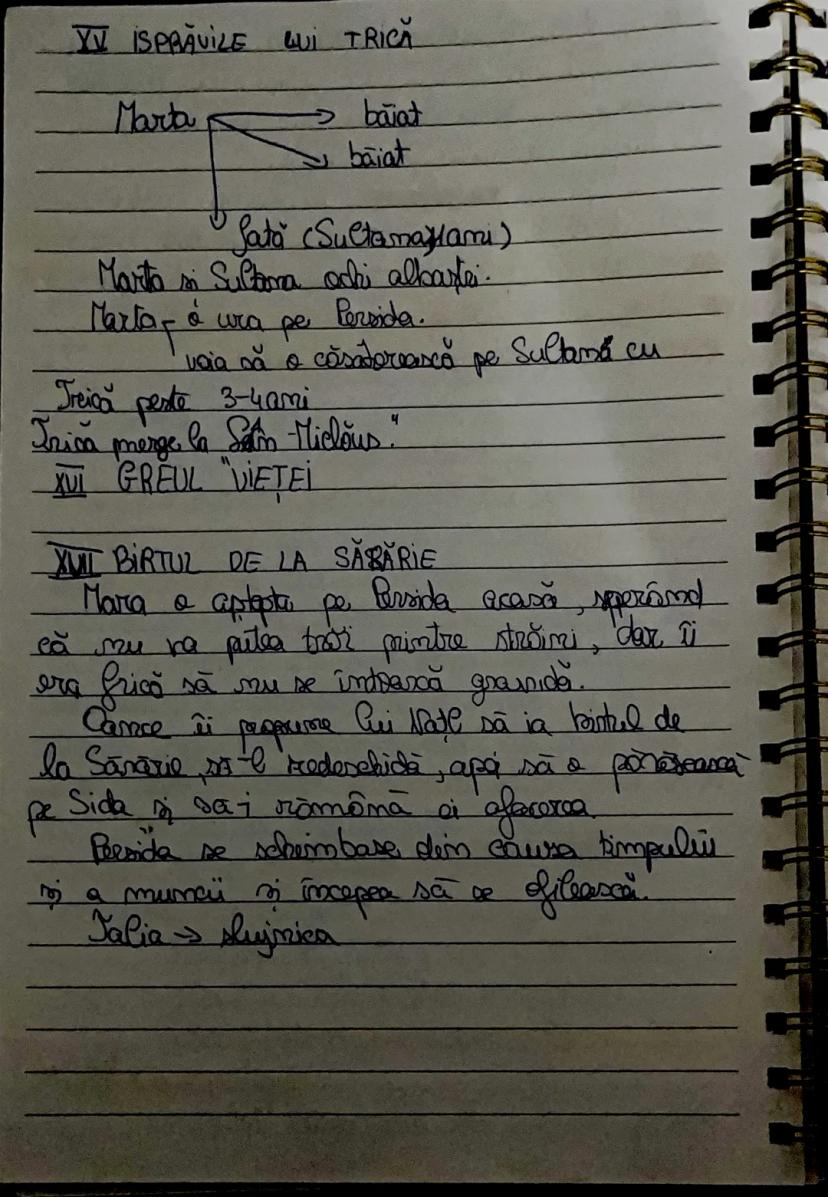 XV ISPRĂVILE LUI TRICĂ
Marta → băiat
băiat
fată (Sultana, ani)
Marta și Sultana ochi albaștri.
Marta - o ura pe Persida.
voia să o căsătorească pe Sultana cu
Trică peste 3-4 ani
Trică merge la Sân-Miclăuș."
XVI GREUL VIEȚEI
XVII BIRTUL DE LA SĂRĂRIE
Mara o aștepta pe Persida acasă, sperând
că nu va putea trăi printre străini, dar îi
era frică să nu se întoarcă gravidă.
îi propune lui Națl să ia birtul de
la Sărărie, să-l redeschidă, apoi să o părăsească
pe Sida și să-i rămână ei afacerea.
Persida se schimbase din cauza timpului
și a muncii și începea să se ofilească.
Talia → slujnica